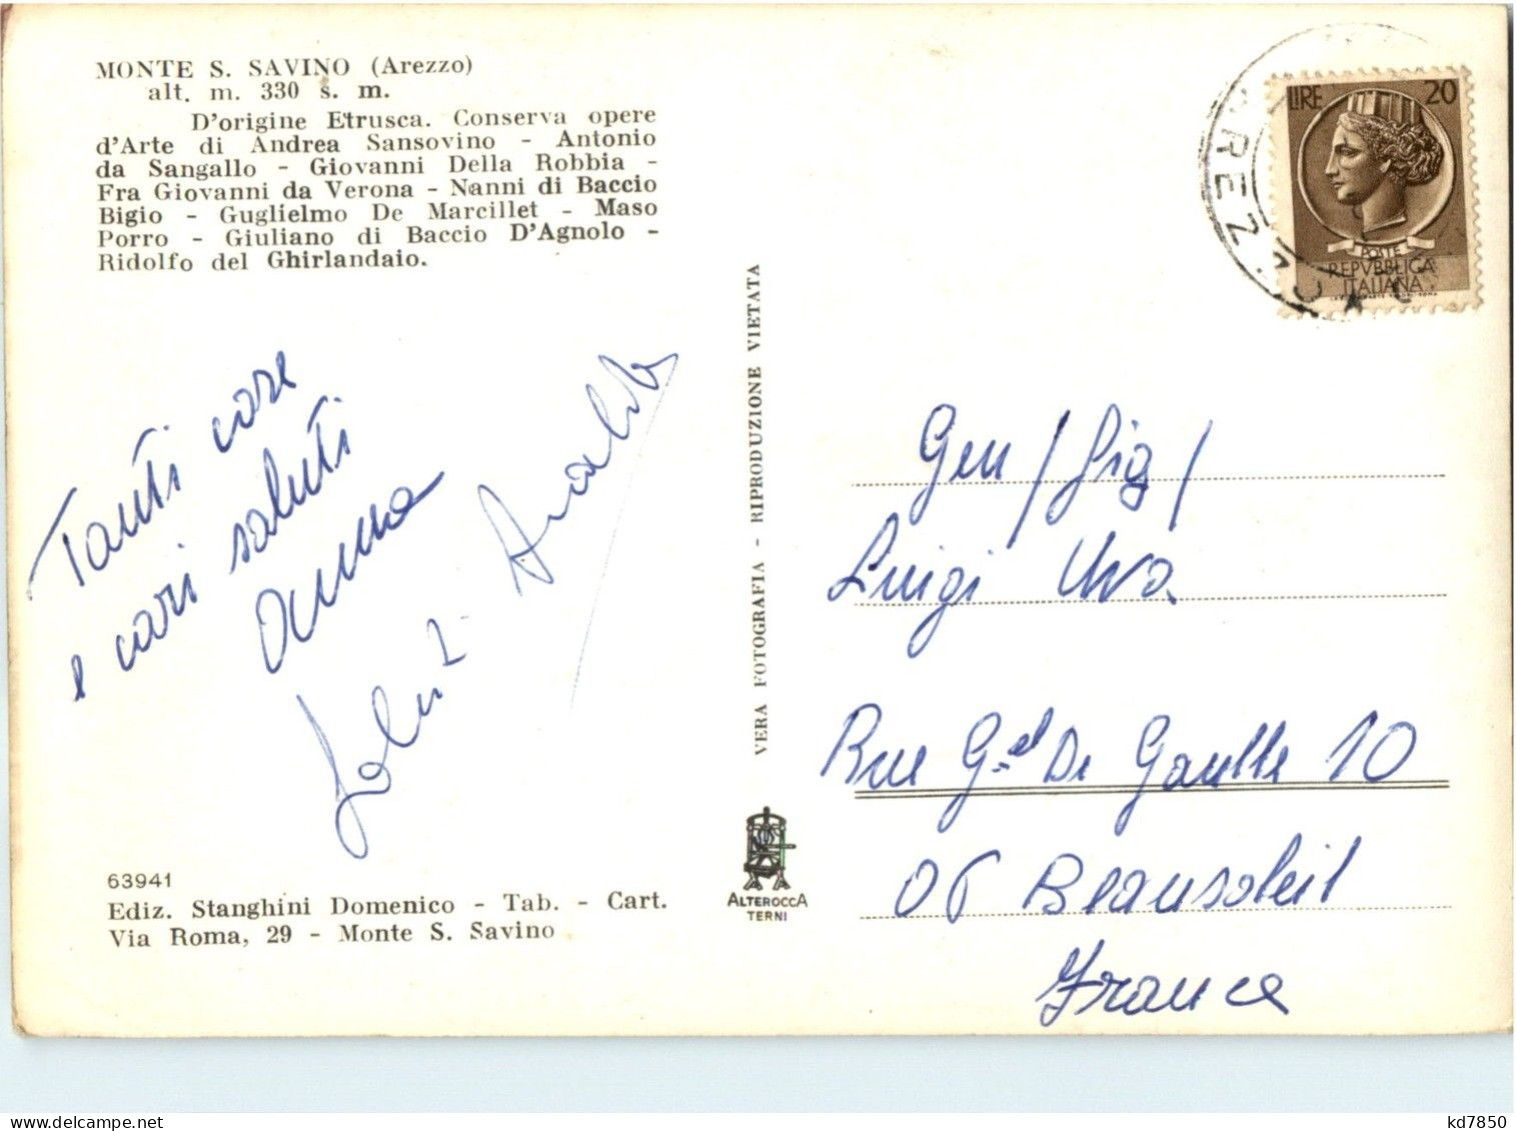 MONTE S. SAVINO (Arezzo)
alt. m. 330 s. m.
D'origine Etrusca. Conserva opere
d'Arte di Andrea Sansovino - Antonio
da Sangallo - Giovanni Della Robbia -
Fra Giovanni da Verona - Nanni di Baccio
Bigio - Guglielmo De Marcillet - Maso
Porro - Giuliano di Baccio D'Agnolo -
Ridolfo del Ghirlandaio.
Tanti cose
e cari saluti
Anna
Saluti
63941
Ediz. Stanghini Domenico - Tab. - Cart.
Via Roma, 29 - Monte S. Savino
VERA FOTOGRAFIA - RIPRODUZIONE VIETATA
ALTEROCCA
TERNI
AREZZO
LIRE 20
POSTE
REPVBBLICA
ITALIANA
Gen/Sig/
Luigi Uva
Rue G.al De Gaulle 10
06 Beausoleil
France
kd7850